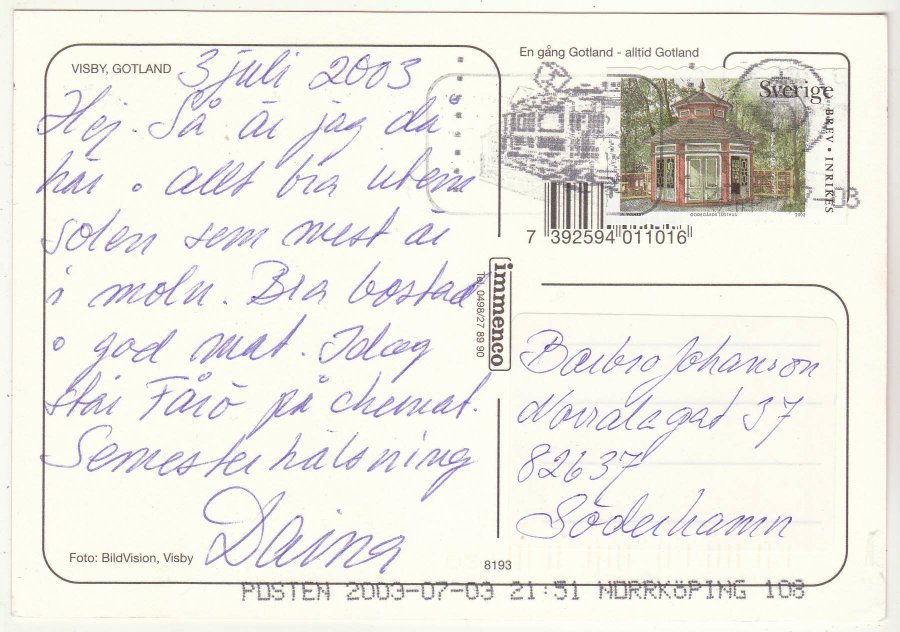 VISBY, GOTLAND
3 juli 2003
Hej. Så är jag då
här. Allt bra utom
solen som mest är
i moln. Bra bostad
o god mat. Idag
står Fårö på chemat.
Semesterhälsning
Daina
Foto: BildVision, Visby
8193
En gång Gotland - alltid Gotland
Sverige
BREV • INRIKES
ÖDEGÅRDS LUSTHUS
2002
7 392594 011016
immenco
Tel. 0498/27 89 90
Barbro Johanson
Norralagat 37
82637
Söderhamn
POSTEN 2003-07-03 21:51 NORRKÖPING 108